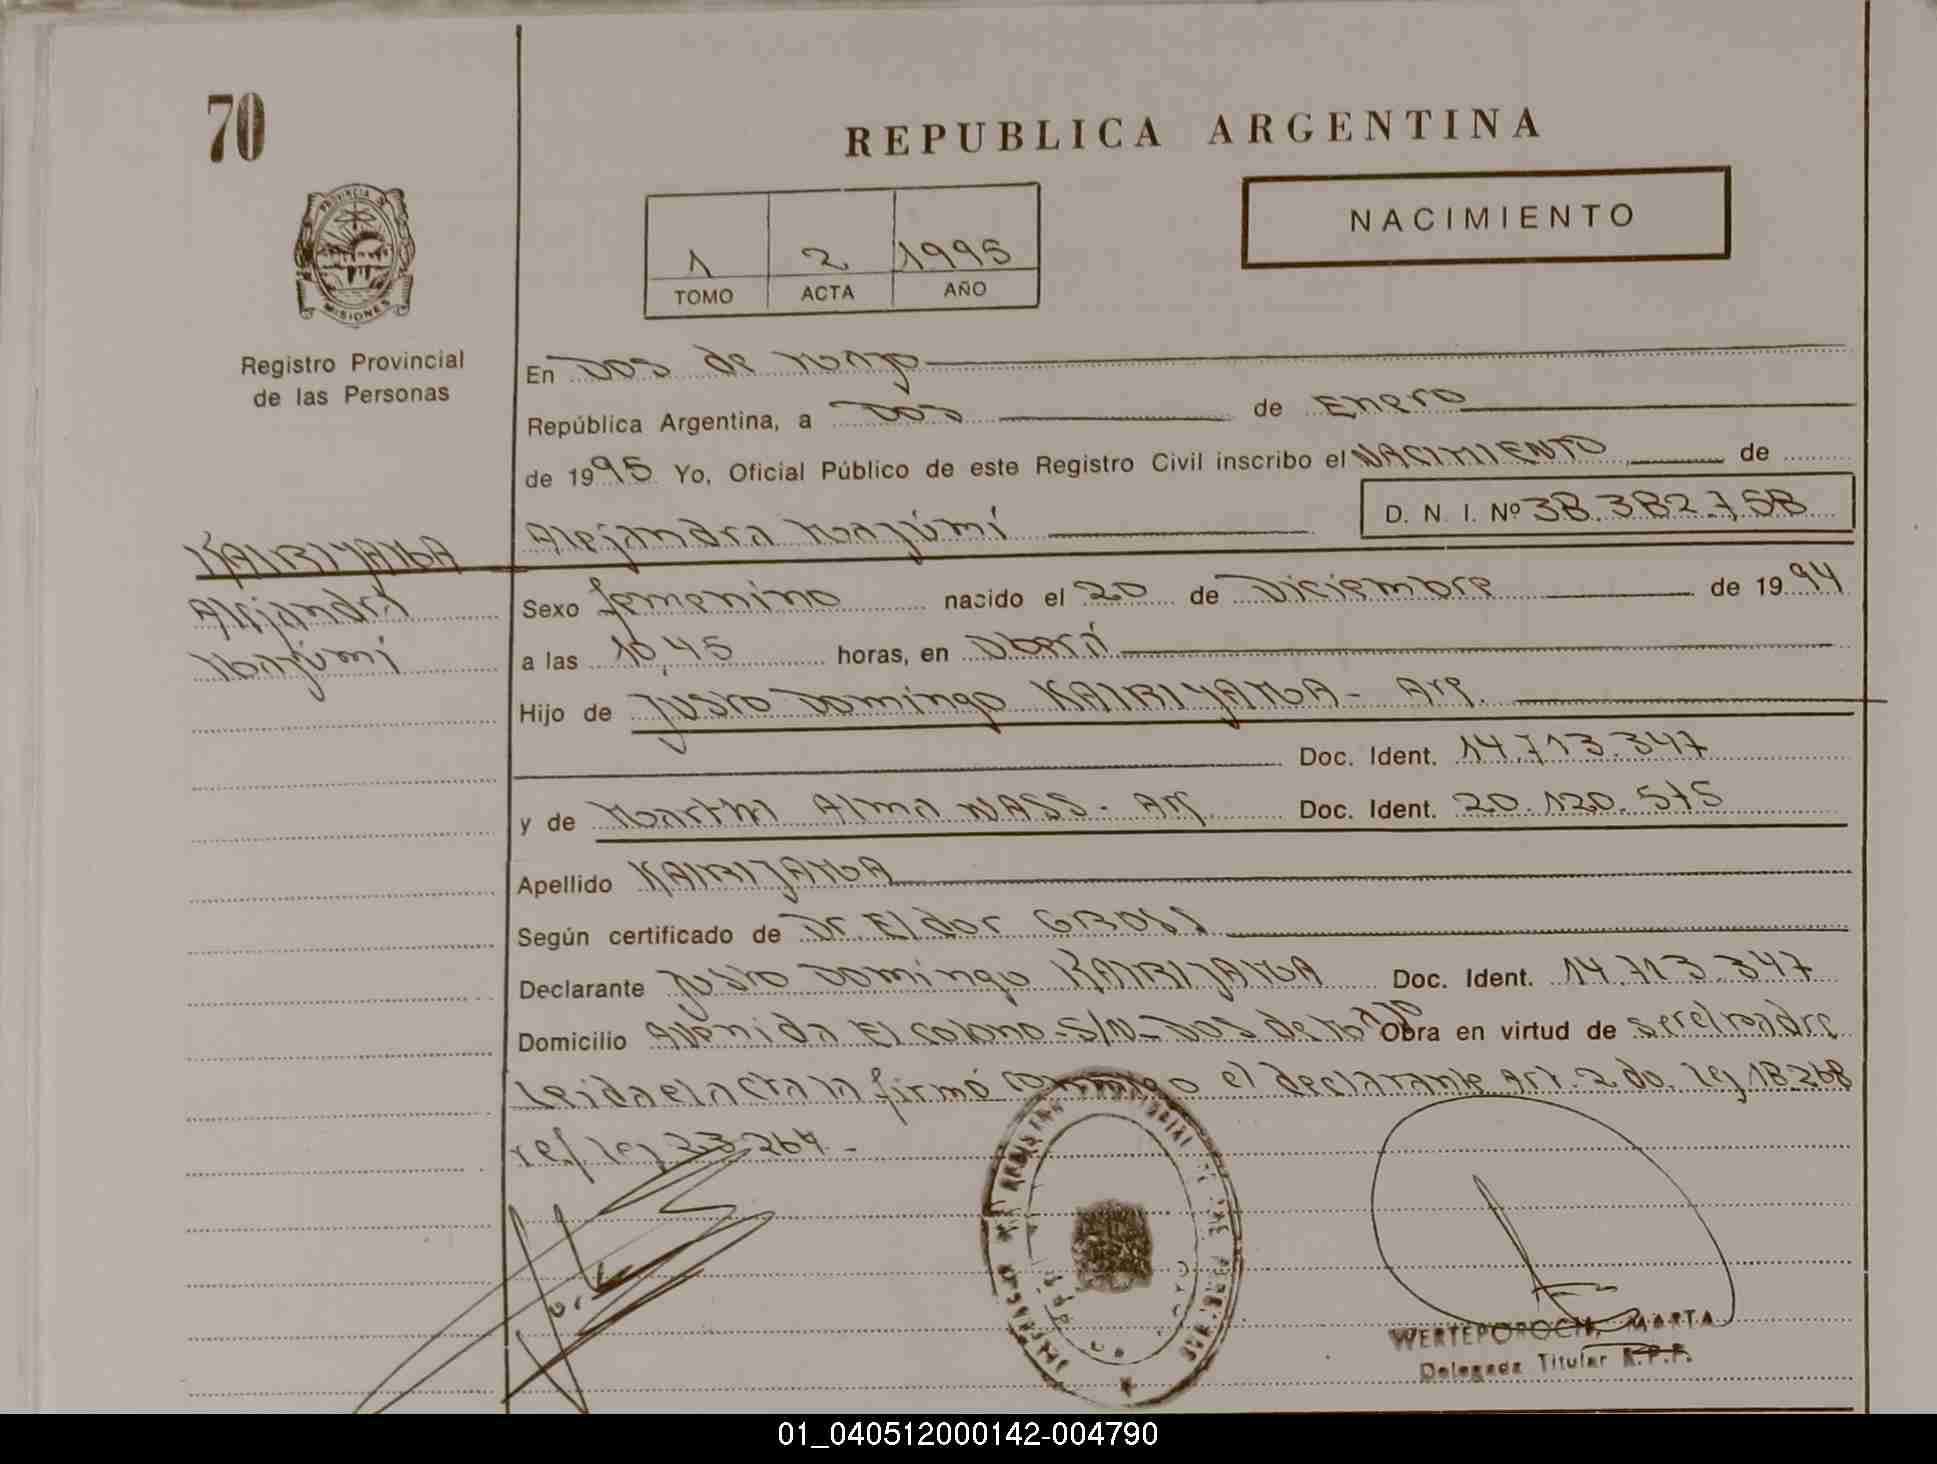 70
REPUBLICA ARGENTINA
NACIMIENTO
1 2 1995
TOMO ACTA AÑO
PROVINCIA DE MISIONES
Registro Provincial
de las Personas
En Dos de Mayo
República Argentina, a Dos de Enero
de 1995 Yo, Oficial Público de este Registro Civil inscribo el NACIMIENTO de
Alejandra Mayumí D. N. I. Nº 38.382.758
KAIRIYAMA
Alejandra
Mayumí
Sexo femenino nacido el 20 de Diciembre de 1994
a las 10,45 horas, en Oberá
Hijo de Justo Domingo KAIRIYAMA - Arg.
Doc. Ident. 14.713.347
y de Martha Alma NASS - Arg. Doc. Ident. 20.120.575
Apellido KAIRIYAMA
Según certificado de Dr. Eldor GROSS
Declarante Justo Domingo KAIRIYAMA Doc. Ident. 14.713.347
Domicilio Avenida El Colono S/N - Dos de Mayo Obra en virtud de ser el padre
Leida el acta la firmó conmigo el declarante Art. 2 do. ley 18.248
ref ley 23.264.-
WERTEPOROCH, MARTA
Delegada Titular R.P.P.
01_040512000142-004790